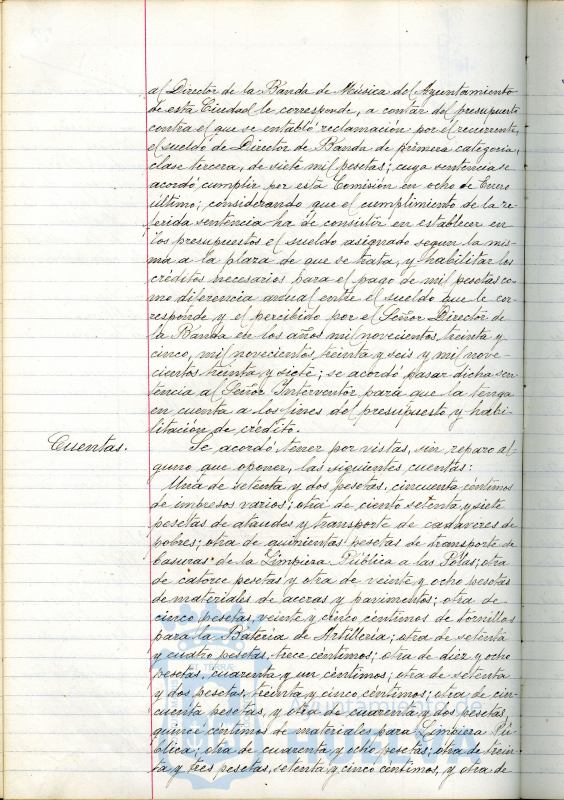 al Director de la Banda de Música del Ayuntamiento
de esta Ciudad le corresponde, a contar del presupuesto
contra el que se entabló reclamación por el recurrente,
el sueldo de Director de Banda de primera categoría,
clase tercera, de siete mil pesetas; cuya sentencia se
acordó cumplir por esta Comisión en ocho de Enero
último; considerando que el cumplimiento de la re-
ferida sentencia ha de consistir en establecer en
los presupuestos el sueldo asignado segun la mis-
ma a la plaza de que se trata, y habilitar los
créditos necesarios para el pago de mil pesetas co-
mo diferencia anual entre el sueldo que le cor-
responde y el percibido por el Señor Director de
la Banda en los años mil novecientos treinta y
cinco, mil novecientos treinta y seis y mil nove-
cientos treinta y siete; se acordó pasar dicha sen-
tencia al Señor Interventor para que la tenga
en cuenta a los fines del presupuesto y habi-
litación de crédito.
Cuentas. Se acordó tener por vistas, sin reparo al-
guno que oponer, las siguientes cuentas:
Una de setenta y dos pesetas, cincuenta céntimos
de impresos varios; otra de ciento setenta y siete
pesetas de ataudes y transporte de cadaveres de
pobres; otra de quinientas pesetas de transporte de
basuras de la Limpieza Pública a las ; otra
de catorce pesetas y otra de veinte y ocho pesetas
de materiales de aceras y pavimentos; otra de
cinco pesetas, veinte y cinco céntimos de tornillos
para la Bateria de Artilleria; otra de setenta
y cuatro pesetas, trece céntimos; otra de diez y ocho
pesetas, cuarenta y un céntimos; otra de setenta
y dos pesetas, treinta y cinco céntimos; otra de cin-
cuenta pesetas, y otra de cuarenta y dos pesetas,
quince céntimos de materiales para Limpieza Pú-
blica; otra de cuarenta y ocho pesetas; otra de trein-
ta y tres pesetas, setenta y cinco céntimos, y otra de
Ayuntamiento de
HUELVA